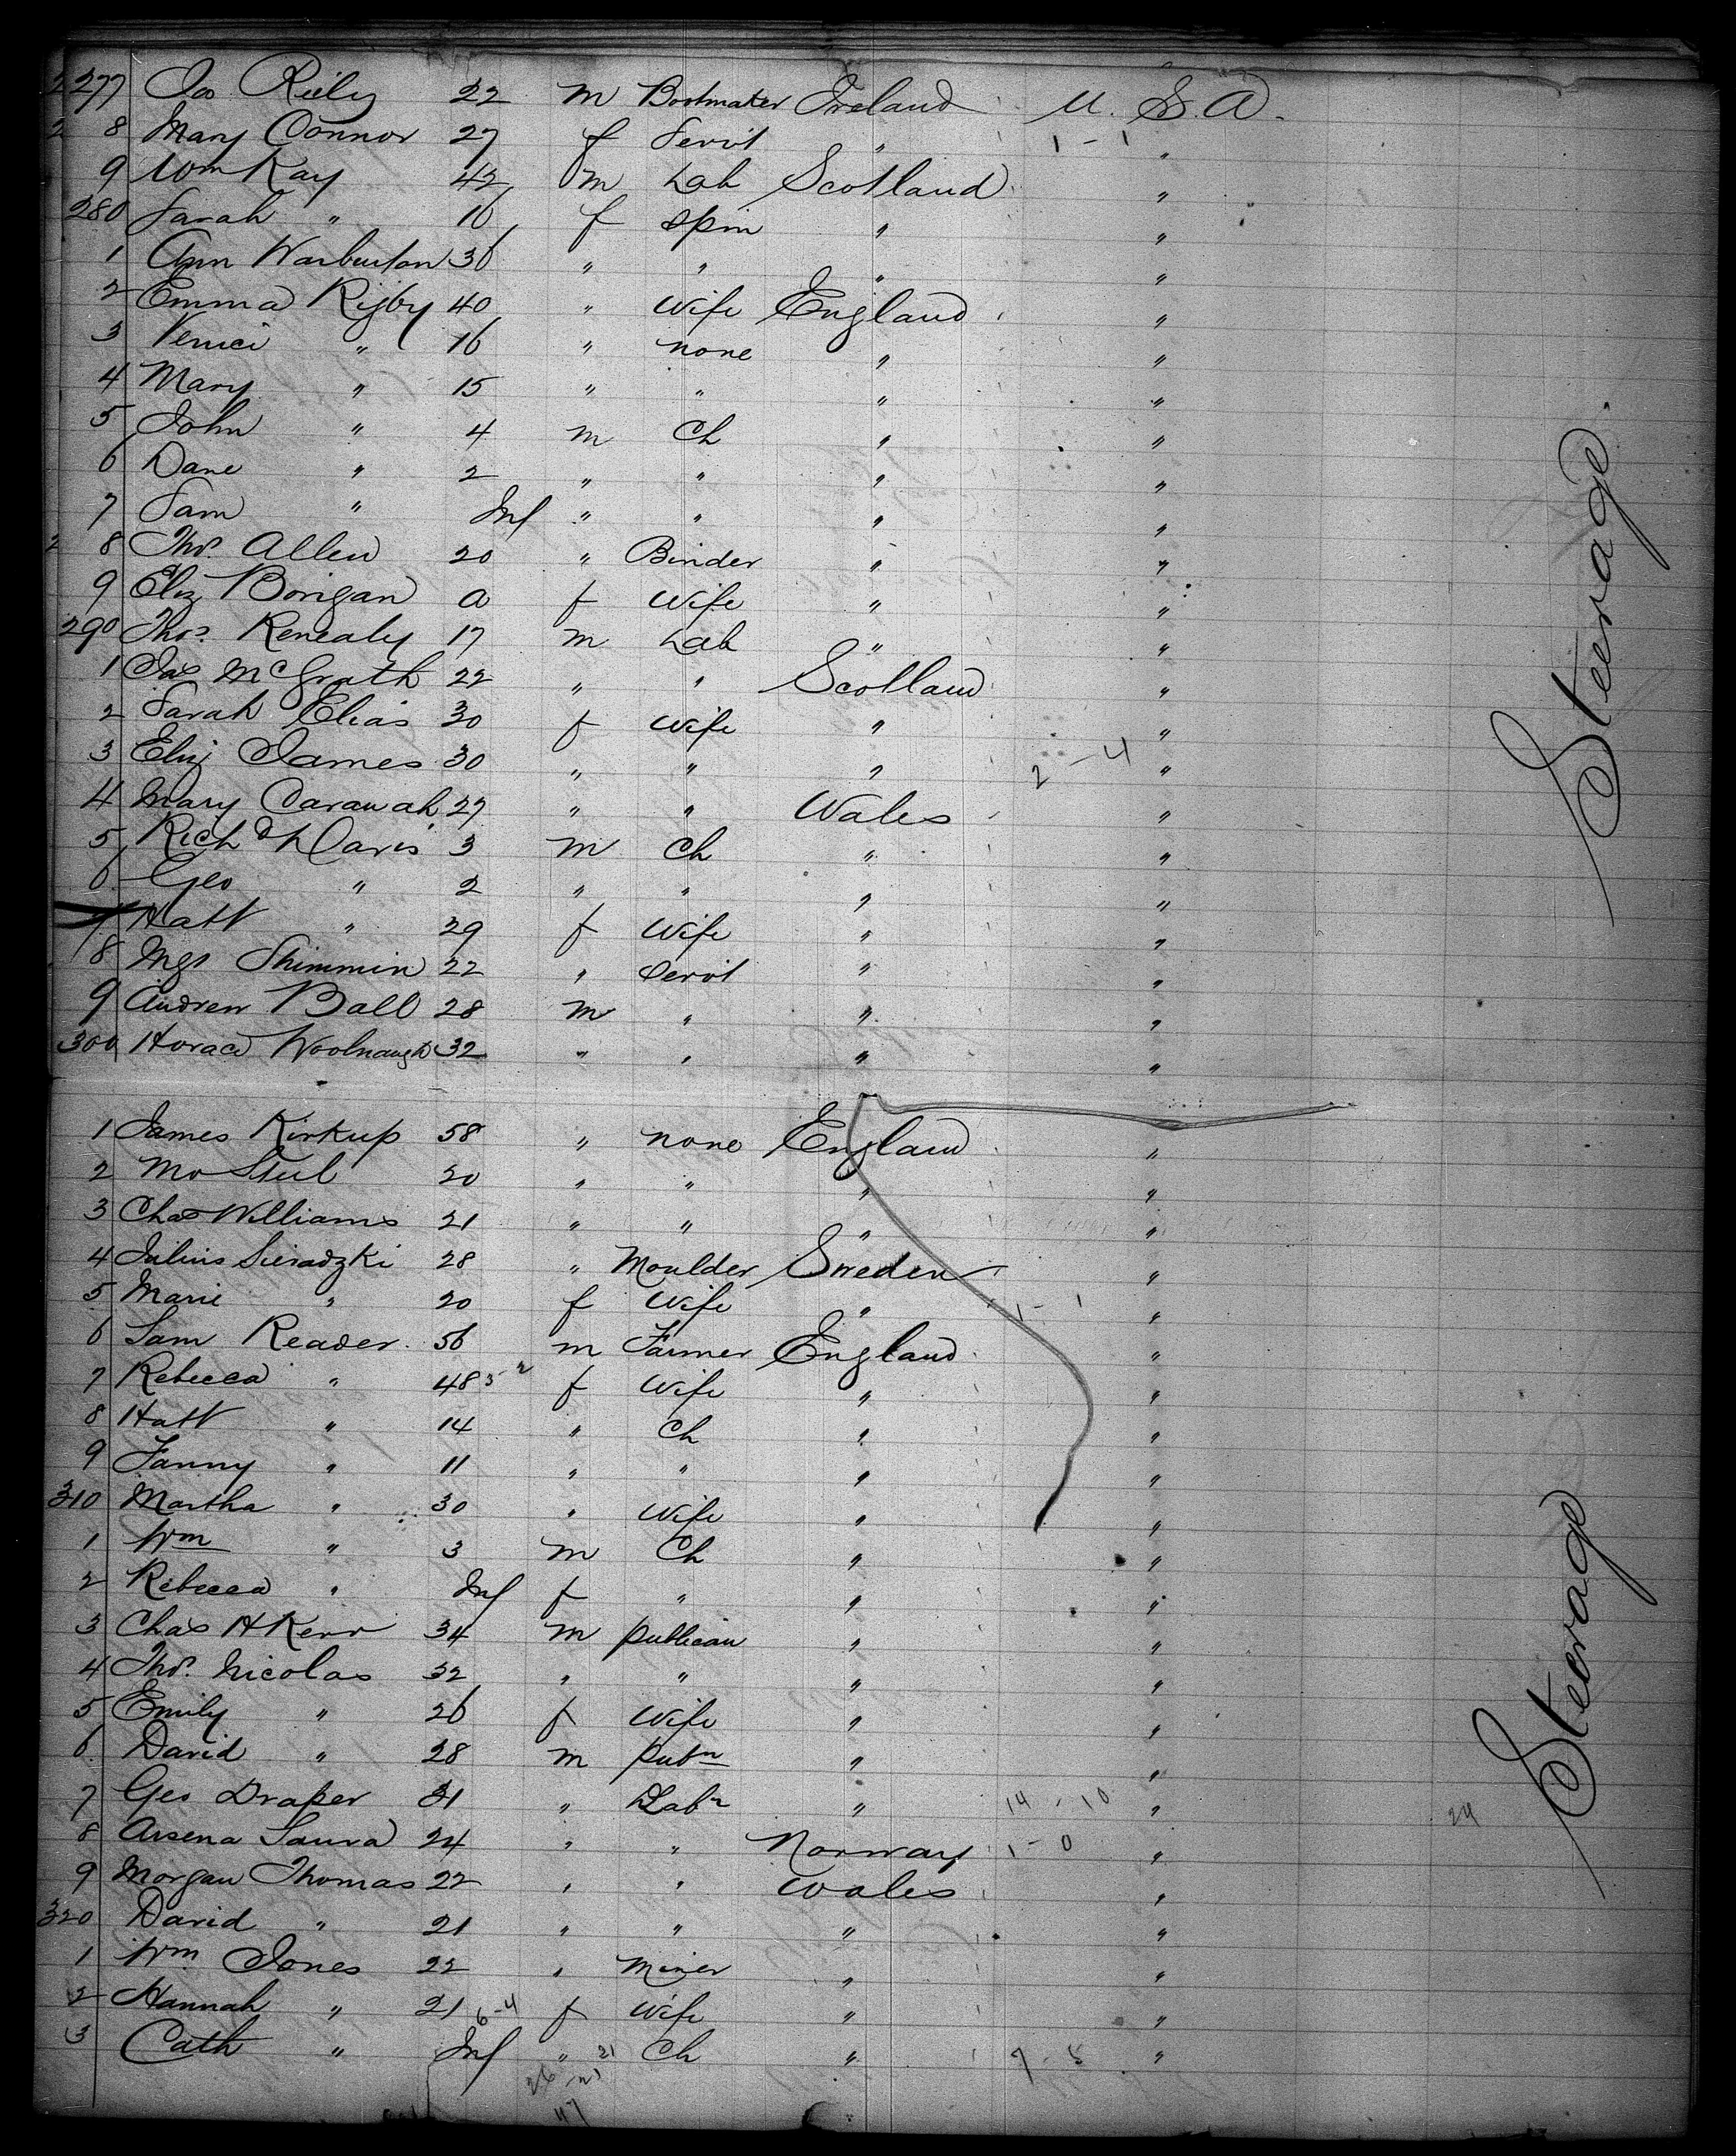 277 Jas Riely 22 m Bootmaker Ireland U. S. A.
8 Mary Connor 27 f Servt " 1 - 1 "
9 Wm Kay 42 m Lab Scotland "
280 Sarah " 16 f Spin " "
1 Ann Warburton 36 " " " "
2 Emma Rigby 40 " Wife England "
3 " 16 " none " "
4 Mary " 15 " " " "
5 John " 4 m Ch " "
6 Dane " 2 " " " "
7 Sam " Inf " " " "
8 Thos. Allen 20 " Binder " "
9 Eliz Borigan a f Wife " "
290 Thos. Renealy 17 m Lab " "
1 Jas McGrath 22 " " Scotland "
2 Sarah Elias 30 f Wife " "
3 Eliz James 30 " " " 2 - 4 "
4 Mary Cavanah 27 " " Wales "
5 Richd Davis 3 m Ch " "
6 Geo " 2 " " " "
7 Hatt " 29 f Wife " "
8 Mgt Shimmin 22 " Servt " "
9 Andrew Ball 28 m " " "
300 Horace Woolnough 32 " " " "
Steerage
1 James Kirkup 58 " none England "
2 Mo Steel 20 " " " "
3 Chas Williams 21 " " " "
4 Julius Sieradzki 28 " Moulder Sweden "
5 Marie " 20 f Wife " 1 - 1 "
6 Sam Reader 56 m Farmer England "
7 Rebecca " 48 f Wife " "
8 Hatt " 14 " Ch " "
9 Fanny " 11 " " " "
310 Martha " 30 " Wife " "
1 Wm " 3 m Ch " "
2 Rebecca " Inf f " " "
3 Chas H Kerr 34 m Publican " "
4 Thos. Nicolas 32 " " " "
5 Emily " 26 f Wife " "
6 David " 28 m Pubn " "
7 Geo Draper 31 " Labr " 14 - 10 " 24
8 Arsena Laura 24 " " Norway 1 - 0 "
9 Morgan Thomas 22 " " Wales "
320 David " 21 " " " "
1 Wm Jones 22 " Miner " "
2 Hannah " 21 6-4 f Wife " "
3 Cath " Inf " 21 Ch " 7 - 5 "
26
47
Steerage